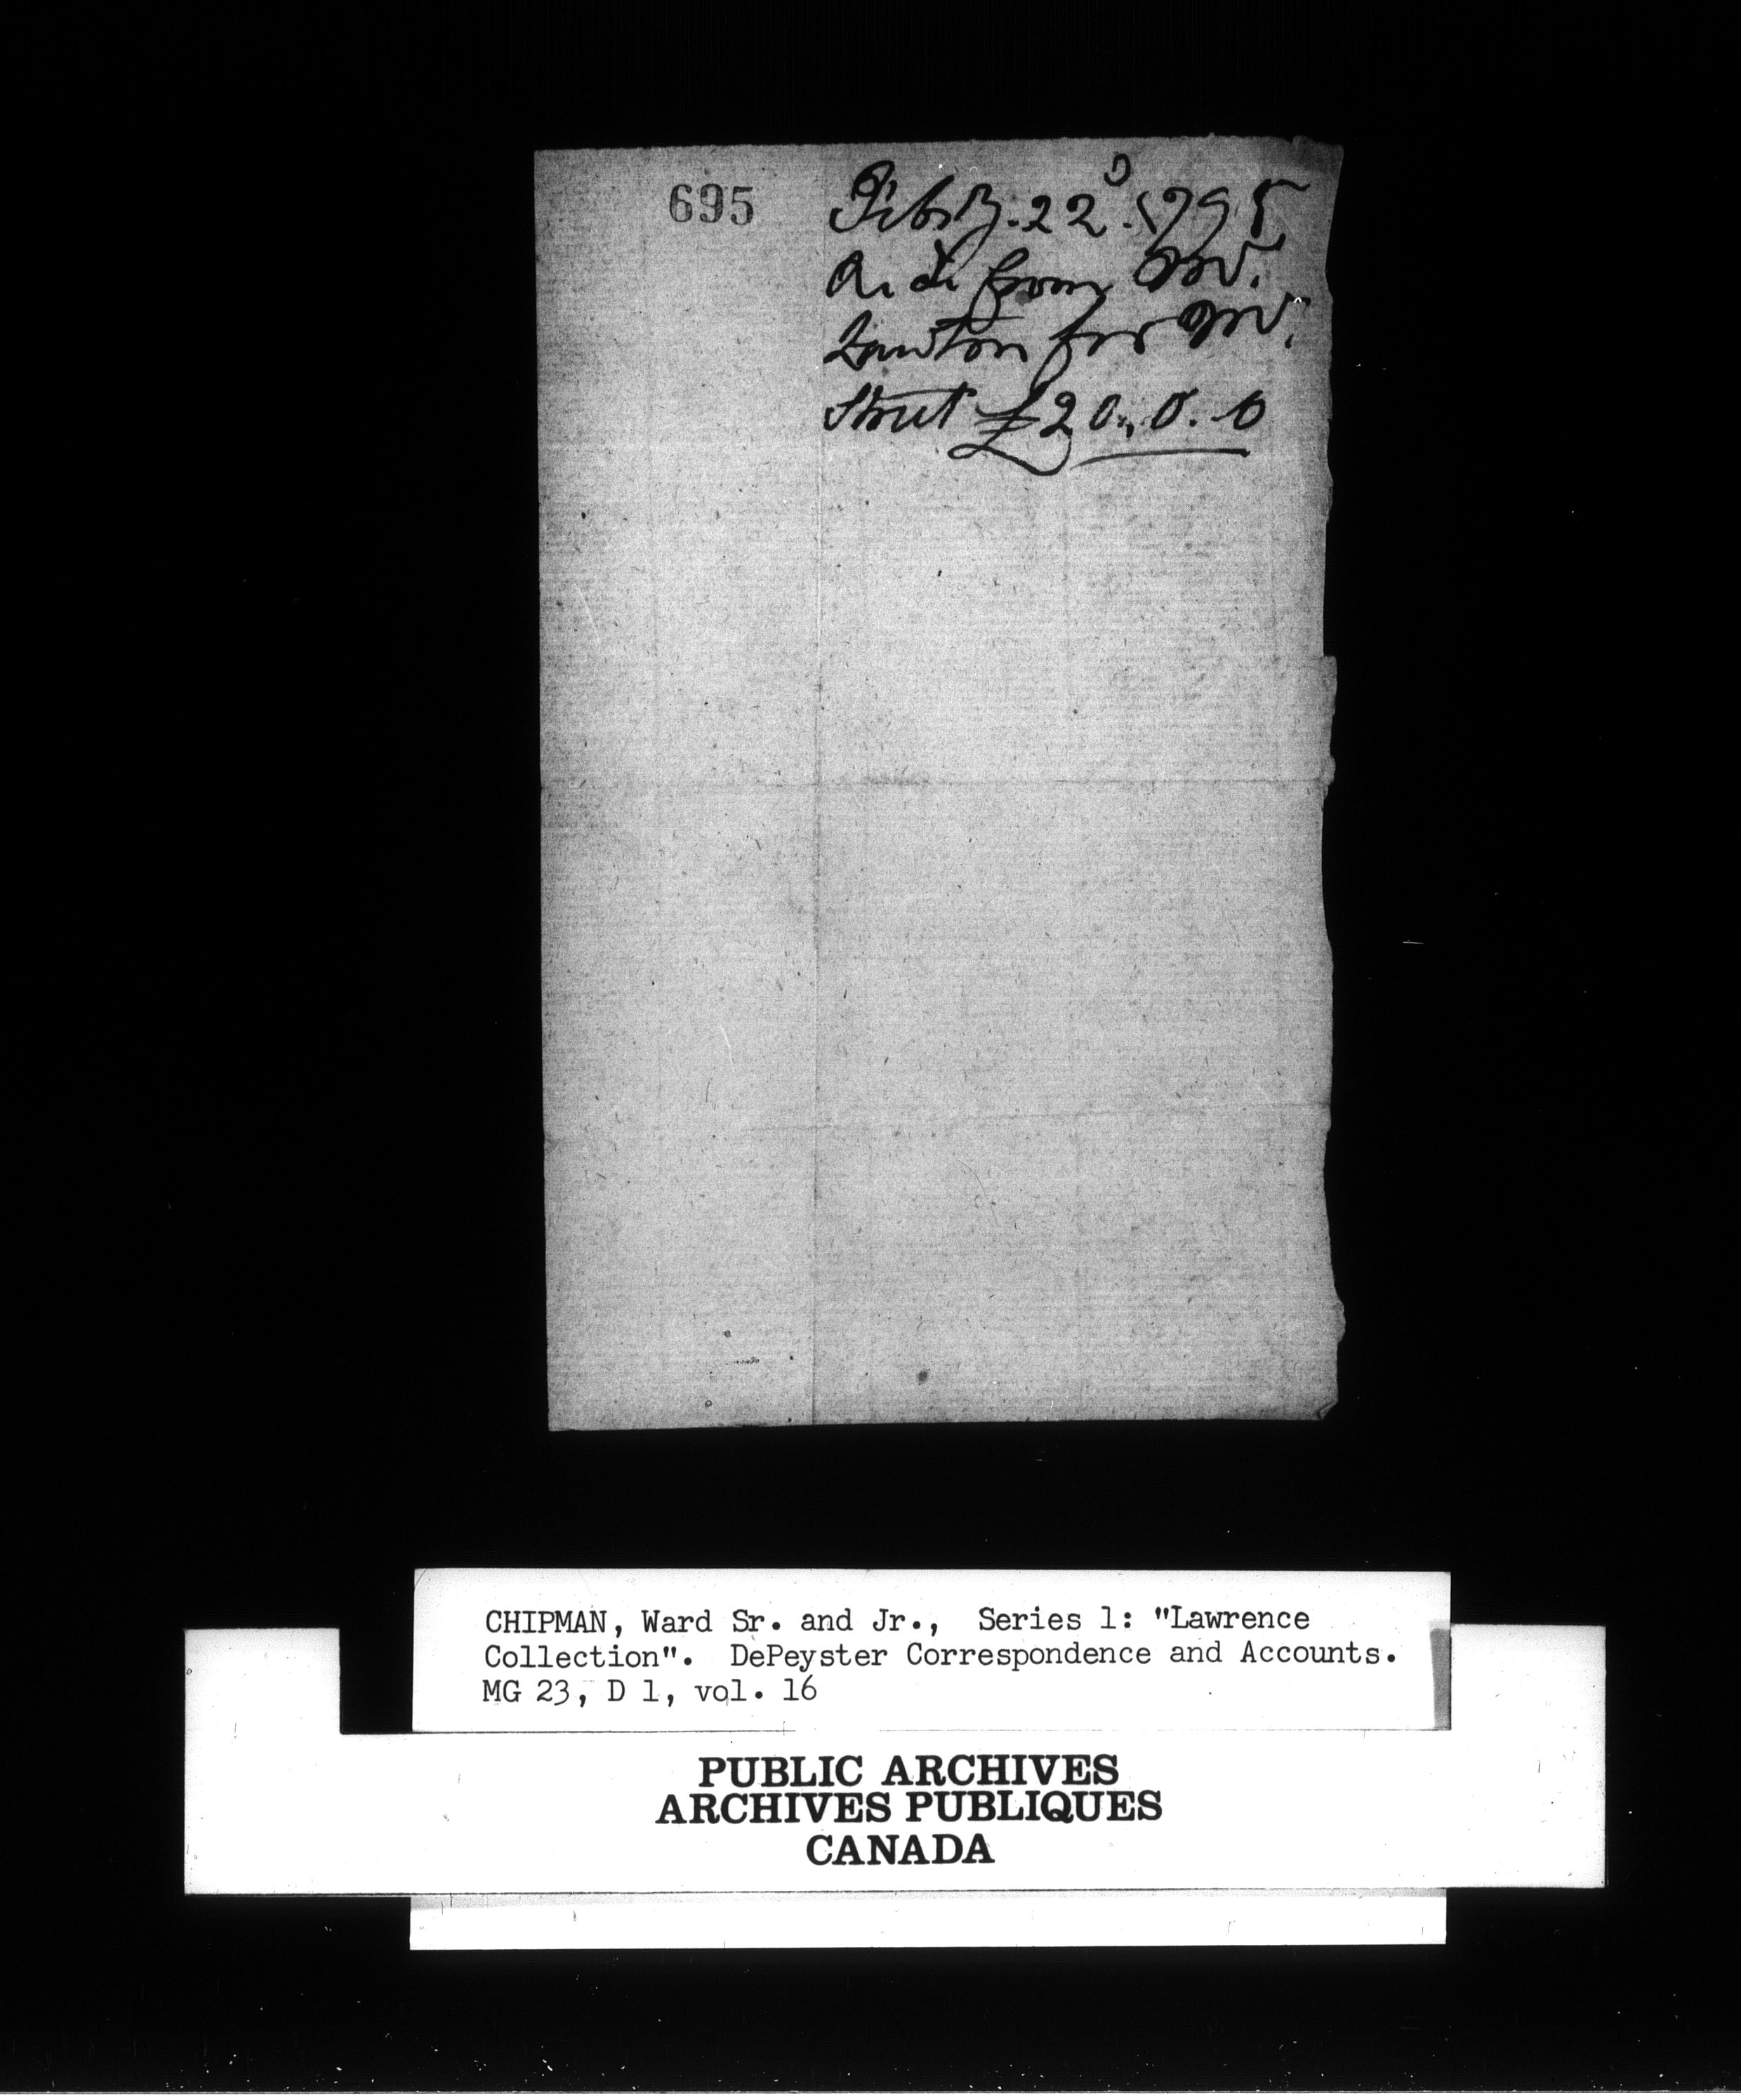 695
Feby. 22d. 1795
Recd from Mr.
Lawton for Mr.
Street £20..0.0
CHIPMAN, Ward Sr. and Jr., Series 1: "Lawrence
Collection". DePeyster Correspondence and Accounts.
MG 23, D 1, vol. 16
PUBLIC ARCHIVES
ARCHIVES PUBLIQUES
CANADA